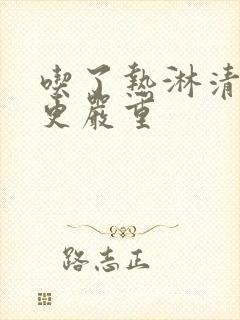 喫了熱淋清
更嚴重
路志正